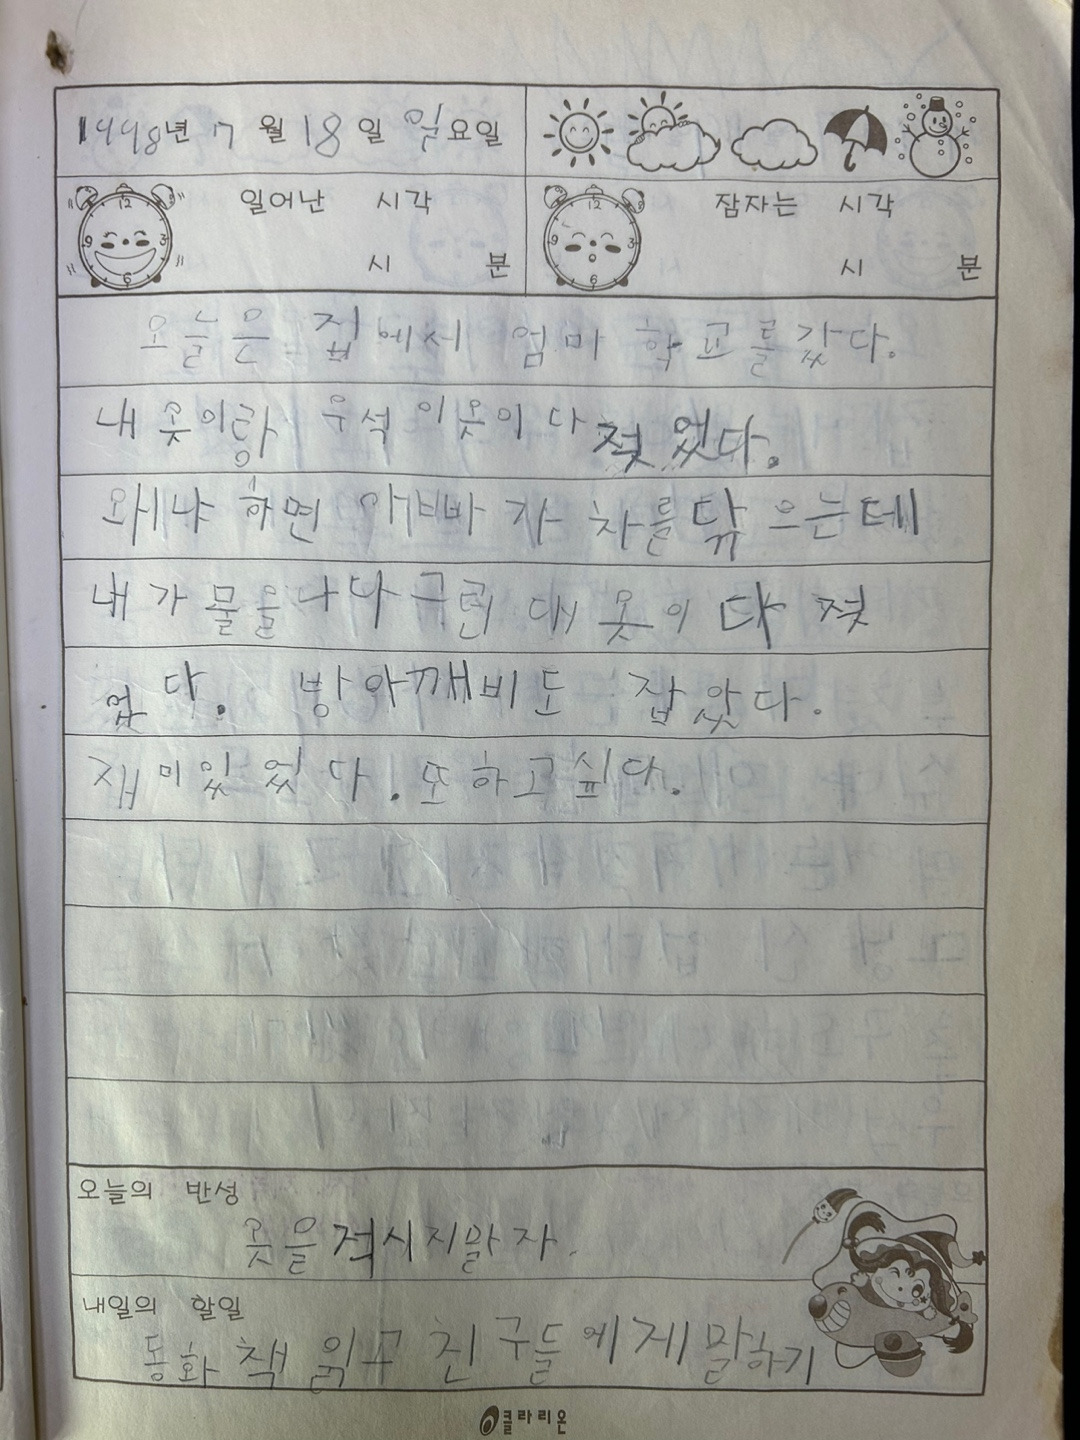 1998년 7월 18일 일요일
일어난 시각
시 분
잠자는 시각
시 분
오늘은 집에서 엄마 학교를 갔다.
내 옷이랑 우석이 옷이 다 젖었다.
왜냐하면 아빠가 차를 닦으는데
내가 물을 나다
내 옷이 다 젖
었다. 방아깨비도 잡았다.
재미있었다. 또 하고 싶다.
오늘의 반성
옷을 적시지말자.
내일의 할일
동화책 읽고 친구들에게 말하기
클라리온